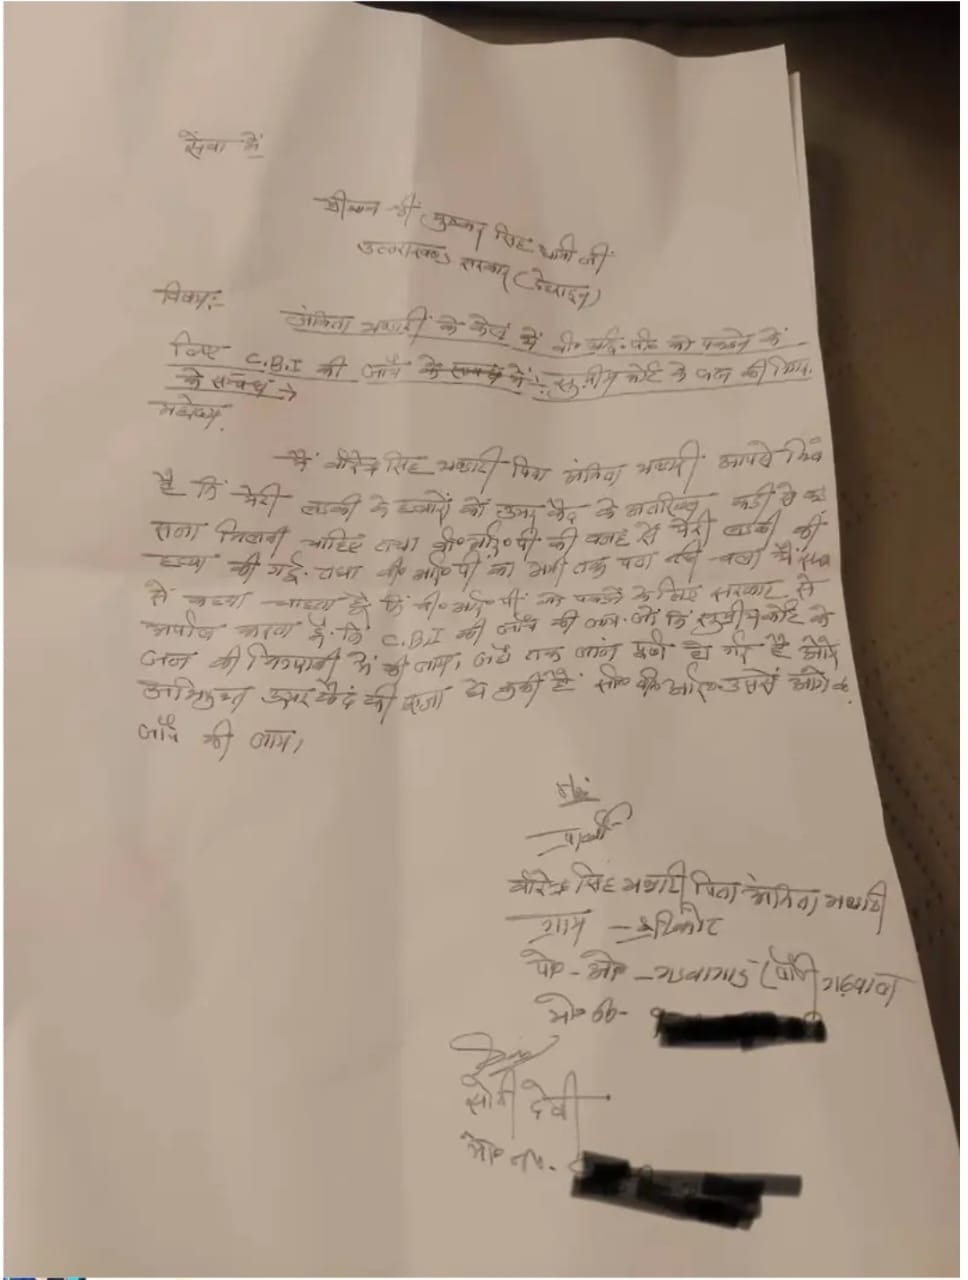 सेवा में
श्रीमान श्री पुष्कर सिंह धामी जी
उत्तराखण्ड सरकार (देहरादून)
विषय:-
अंकिता भण्डारी के केस में वी०आई०पी० को पकडने के
लिए C.B.I की जाँच के सम्बन्ध में :- सुप्रीम कोर्ट के जज की
के सम्बन्ध →
महोदय,
मैं वीरेन्द्र सिंह भण्डारी पिता अंकिता भण्डारी आपसे
है कि मेरी लडकी के हत्यारों को उम्र कैद के अतिरिक्त कडी से कडी
सजा मिलनी चाहिए तथा वी०आई०पी की वजह से मेरी लडकी की
हत्या की गई. तथा वी० आई०पी का अभी तक पता नहीं चला मैं
से कहना चाहता हूँ कि वी० आई० पी को पकडने के लिए सरकार से
अपील करता हूँ. कि C.B.I की जाँच की जाय. जो कि सुप्रीम कोर्ट के
जज की निगरानी में की जाय। जहाँ तक जांच पूर्ण हो गई है और
अभियुक्त उम्रकैद की सजा हो चुकी है उससे आगे की
जाँच की जाय।
प्रार्थी
वीरेन्द्र सिंह भण्डारी पिता अंकिता भण्डारी
ग्राम -
पो० - ओ० - (पौडी गढ़वाल
मो० न०- 9
सोनी देवी
मो० न०.